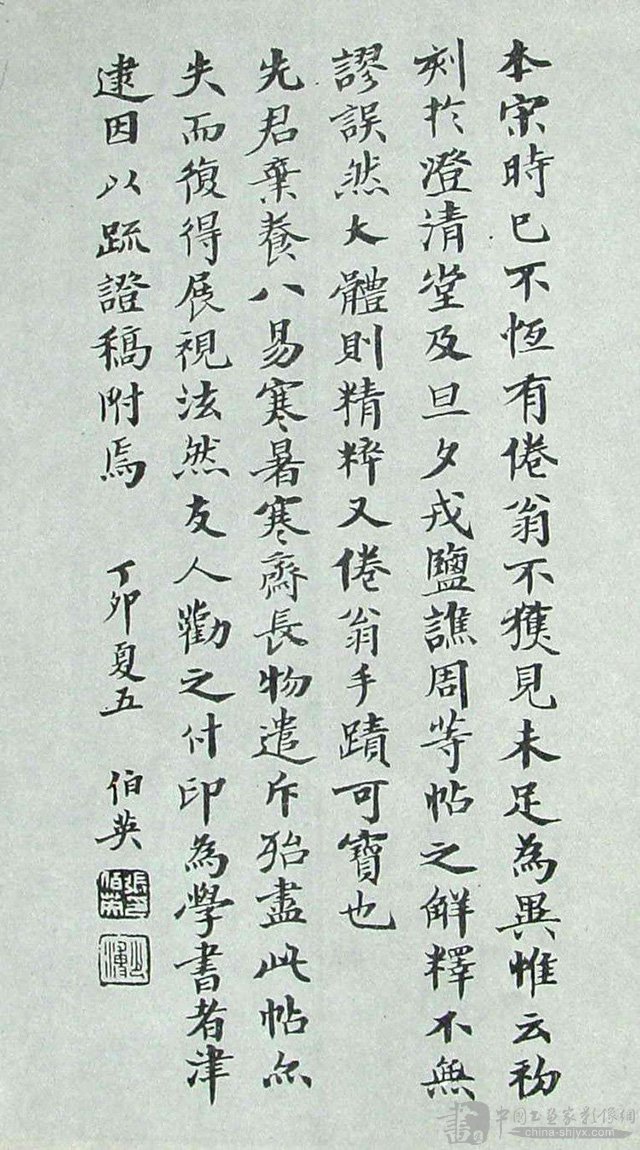 本宋時已不恆有倦翁不獲見未足為異惟云初
刻於澄清堂及旦夕戎鹽譙周等帖之解釋不無
謬誤然大體則精粹又倦翁手蹟可寶也
先君棄養八易寒暑寒齋長物遣斥殆盡此帖亦
失而復得展視泫然友人勸之付印為學書者津
逮因以疏證稿附焉 丁卯夏五 伯英
張伯英
中國書畫家影像網
china-shjyx.com